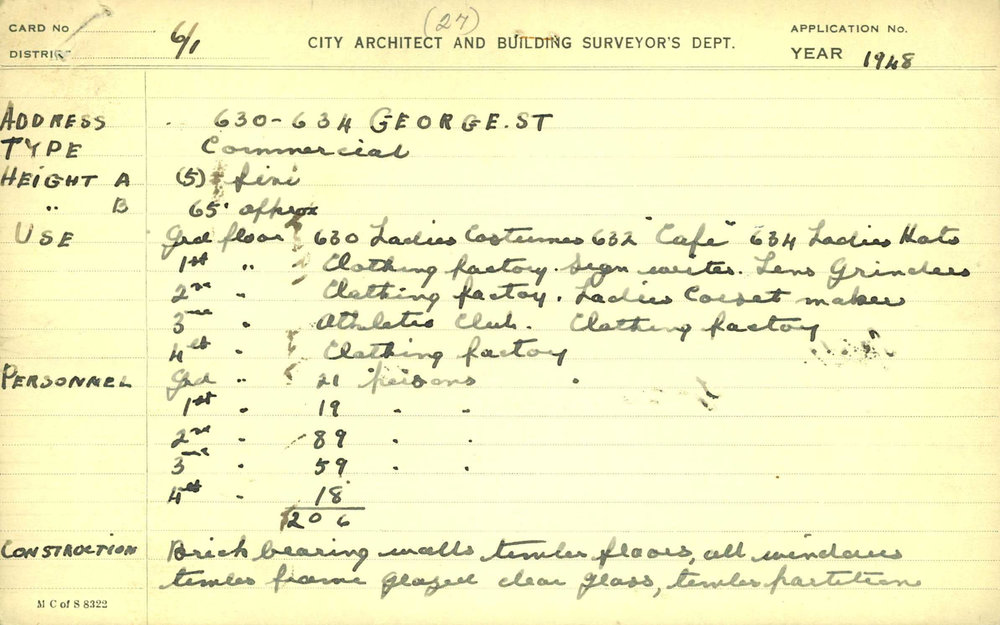 (27)
CARD No
DISTRICT 6/1
CITY ARCHITECT AND BUILDING SURVEYOR'S DEPT.
APPLICATION No.
YEAR 1948
ADDRESS . 630-634 GEORGE.ST
TYPE Commercial
HEIGHT A (5) five
" B 65' approx
USE Grd floor 630 Ladies Costumes 632 "Cafe" 634 Ladies Hats
1st " Clothing factory. Sign writer. Lens Grinders
2nd " Clothing factoy. Ladies Corset maker
3rd " Athletic Club. Clothing factory
4th " Clothing factoy
PERSONNEL Grd " 21 persons
1st " 19 " "
2nd " 89 " "
3rd " 59 " "
4th " 18
206
CONSTRUCTION Brick bearing walls timber floors, all windows
timber frame glazed clear glass, timber partition
M C of S 8322